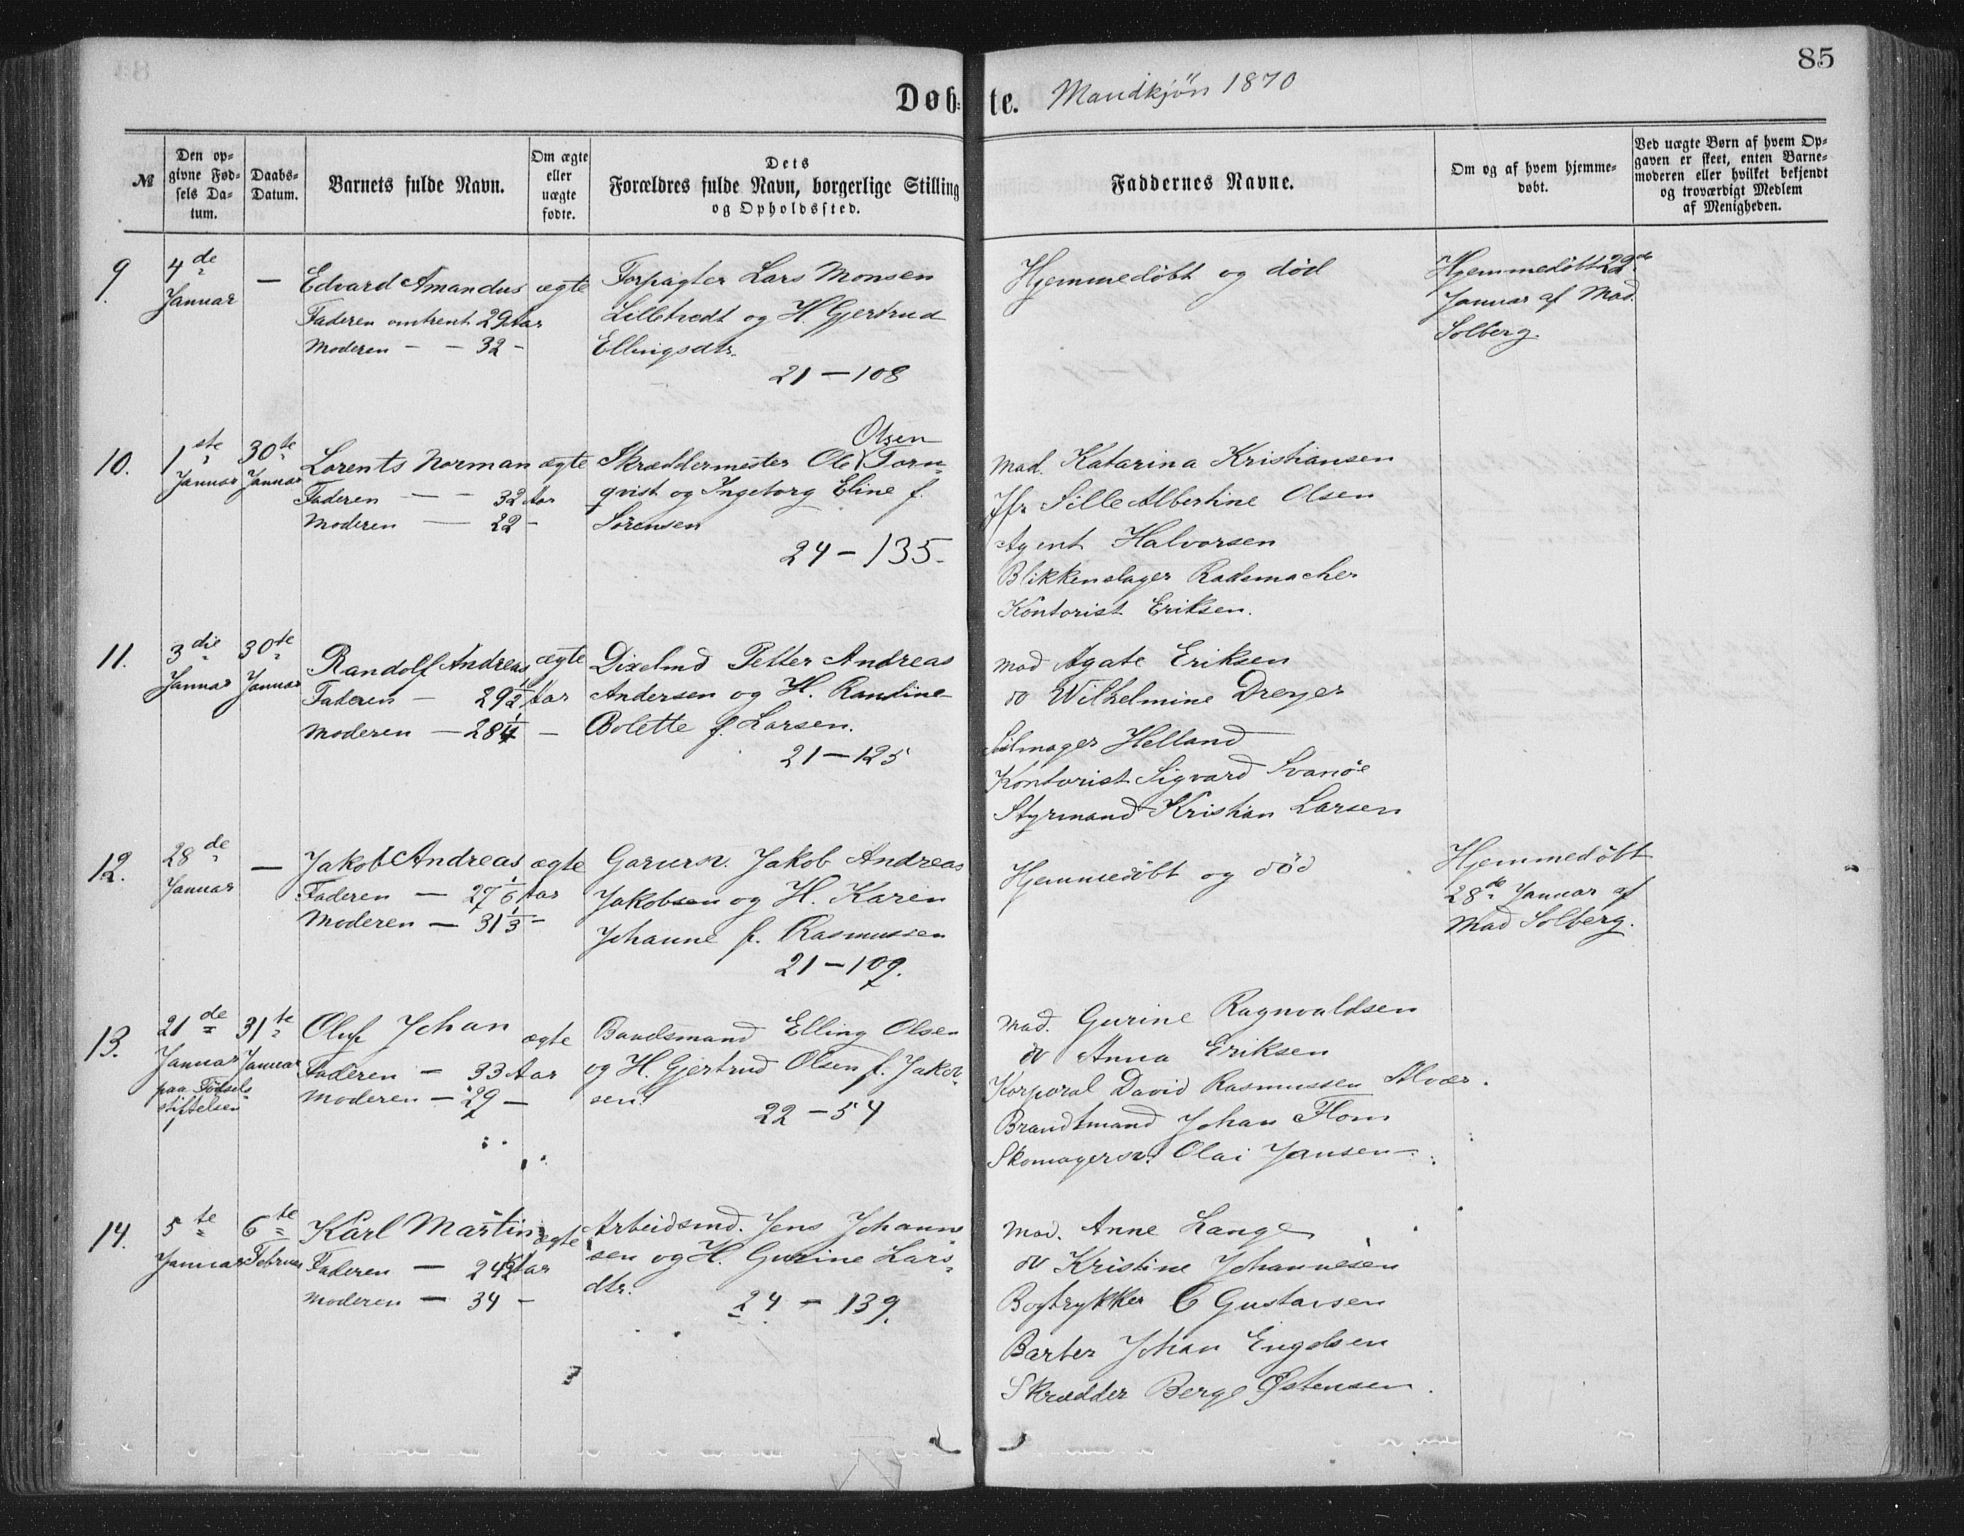 85
Døbte. Mandkjön 1870
№
Den opgivne Fødsels Datum.
Daabs-Datum.
Barnets fulde Navn.
Om ægte eller uægte fødte.
Dets Forældres fulde Navn, borgerlige Stilling og Opholdssted.
Faddernes Navne.
Om og af hvem hjemmedøbt.
Ved uægte Børn af hvem Opgaven er skeet, enten Barnemoderen eller hvilket bekjendt og troværdigt Medlem af Menigheden.
9. 4de Januar — Edvard Amandus ægte Forpagter Lars Monsen
Faderen omtrent 29 Aar Lilletvedt og H. Gjertrud
Moderen — — 32 — Ellingsdtr.
21 — 108
Hjemmedöbt og död
Hjemmedöbt 22de
Januar af Mad.
Solberg.
10. 1ste Januar 30te Januar Lorents Norman ægte Skræddermester Ole Olsen Torn-
Faderen — — 32 Aar qvist og Ingeborg Eline f.
Moderen — 22 — Sörensen
24 — 135.
Mad. Katarina Kristiansen
Jfr Sille Albertine Olsen
Agent Halvorsen
Blikkenslager Rademacher
Kontorist Eriksen.
11. 3die Januar 30te Januar Randolf Andreas ægte Petter Andreas
Faderen — 29 1/2 Aar Andersen og H. Randine
Moderen — 28 1/4 — Bolette f. Larsen.
21 — 125
Mad Agate Eriksen
do Wilhelmine Dreyer
Helland
Kontorist Sigvard Svanöe
Styrmand Kristian Larsen
12. 28de Januar — Jakob Andreas ægte Garversv. Jakob Andreas
Faderen — 27 1/6 Aar Jakobsen og H. Karen
Moderen — 31 1/3 — Johanne f. Rasmussen
21 — 109.
Hjemmedöbt og död
Hjemmedöbt
28de Januar af
Mad Solberg.
13. 21de Januar paa Födselsstiftelsen 31te Januar Oluf Johan ægte Baadsmand Elling Olsen
Faderen — 33 Aar og H. Gjertrud Olsen f. Jakob-
Moderen — 29 — sen.
22 — 54
Mad. Gurine Ragnvaldsen
do Anna Eriksen
Korporal David Rasmussen Alvær.
Brandtmand Johan Flom
Skomagersv. Olai Jansen
14. 5te Januar 6te Februar Karl Martin ægte Arbeidsmd. Jens Johann-
Faderen — 24 1/2 Aar sen og H. Gurine Lars-
Moderen — 34 — dtr.
24 — 139.
Mad. Anne Lange
do Kristine Johannesen
Bogtrykker C Gustavsen
Barber Johan Engelsen
Skrædder Berge Östensen.